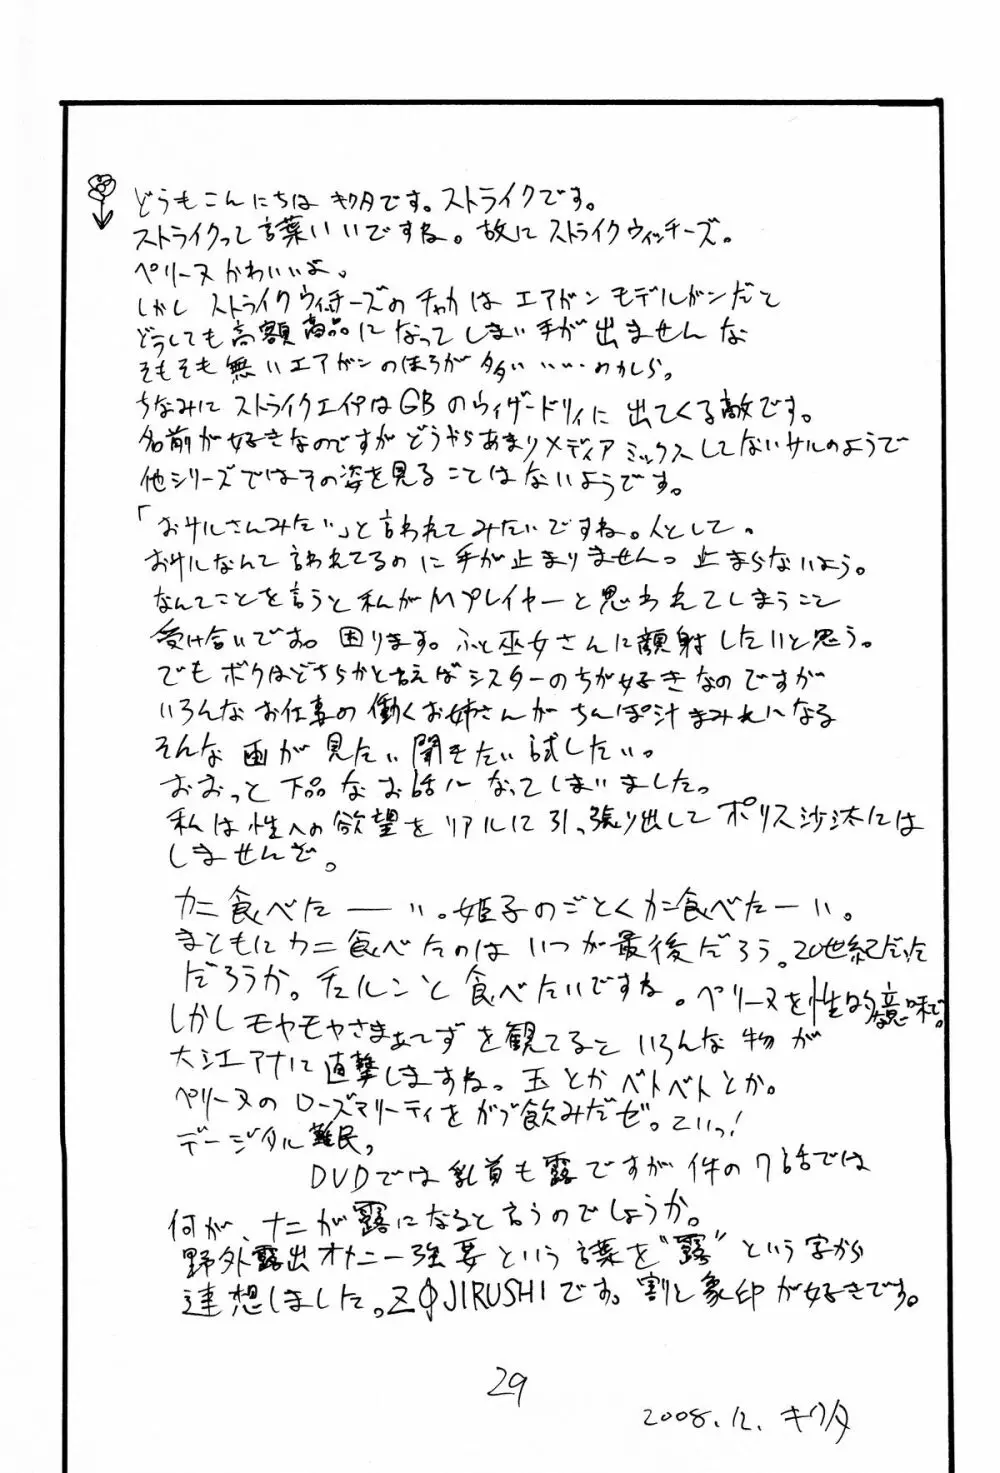 どうもこんにちは キクタです。ストライクです。
ストライクって言葉いいですね。故にストライクウィッチーズ。
ペリーヌかわいいよ。
しかし ストライクウィッチーズのチャカは エアガン モデルガンだと
どうしても高額商品になってしまい手が出ませんな
そもそも無いエアガンのほうが多い‥‥かしら。
ちなみに ストライクエイプはGBのウィザードリィに出てくる敵です。
名前が好きなのですがどうやらあまりメディアミックスしてないサルのようで
他シリーズではその姿を見ることはないようです。
「おサルさんみたい」と言われてみたいですね。人として。
おサルなんて言われてるのに手が止まりませんっ止まらないよう。
なんてことを言うと私がMプレイヤーと思われてしまうこと
受け合いです。困ります。ふと巫女さんに顔射したいと思う。
でもボクはどちらかと言えばシスターのちが好きなのですが
いろんなお仕事の働くお姉さんがちんぽ汁まみれになる
そんな画が見たい聞きたい試したい。
おおっと下品なお話になってしまいました。
私は性への欲望をリアルに引っ張り出してポリス沙汰には
しませんぞ。
カニ食べたーい。姫子のごとくカニ食べたーい。
まともにカニ食べたのはいつが最後だろう。20世紀だった
だろうか。チュルンと食べたいですね。ペリーヌを性的な意味で。
しかしモヤモヤさまぁ〜ずを観てるといろんな物が
大江アナに直撃しますね。玉とかベトベトとか。
ペリーヌのローズマリーティをがぶ飲みだゼ。こいっ!
デージタル難民。
DVDでは乳首も露ですが件の7話では
何が、ナニが露になると言うのでしょうか。
野外露出オナニー強要という言葉を“露”という字から
連想しました。ZOJIRUSHIです。割と象印が好きです。
29
2008.12. キクタ